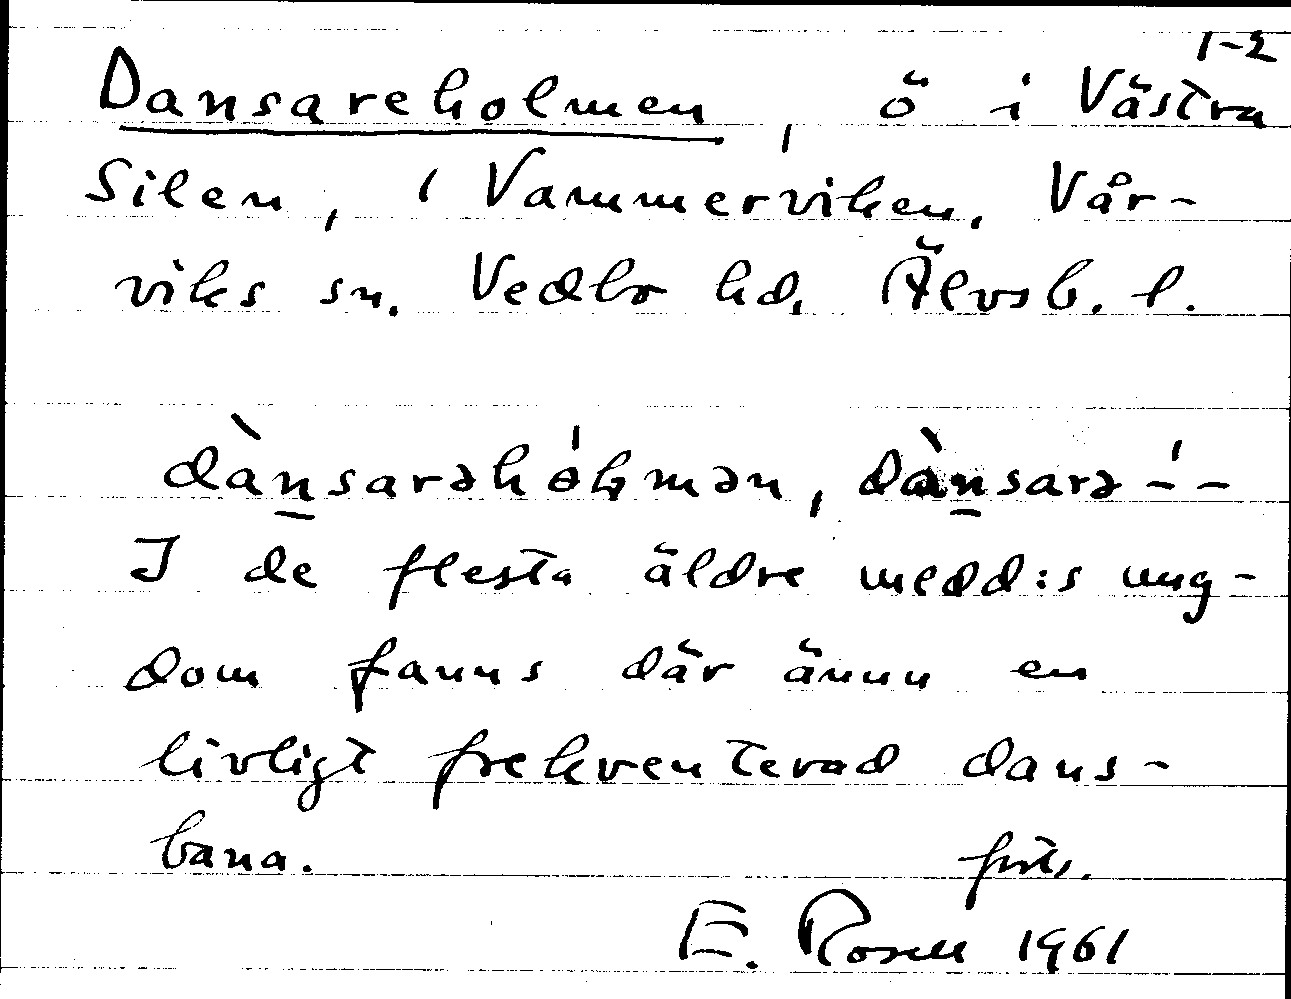 1-2
Dansareholmen, ö i Västra
Silen, i Vammerviken, Vår-
viks sn. Vedbo hd, Älvsb. l.
dàn̲sarəhól̥mən, dàn̲sarə-́-
I de flesta äldre medd:s ung-
dom fanns där ännu en
livligt frekventerad dans-
bana. forts.
E. Rosell 1961